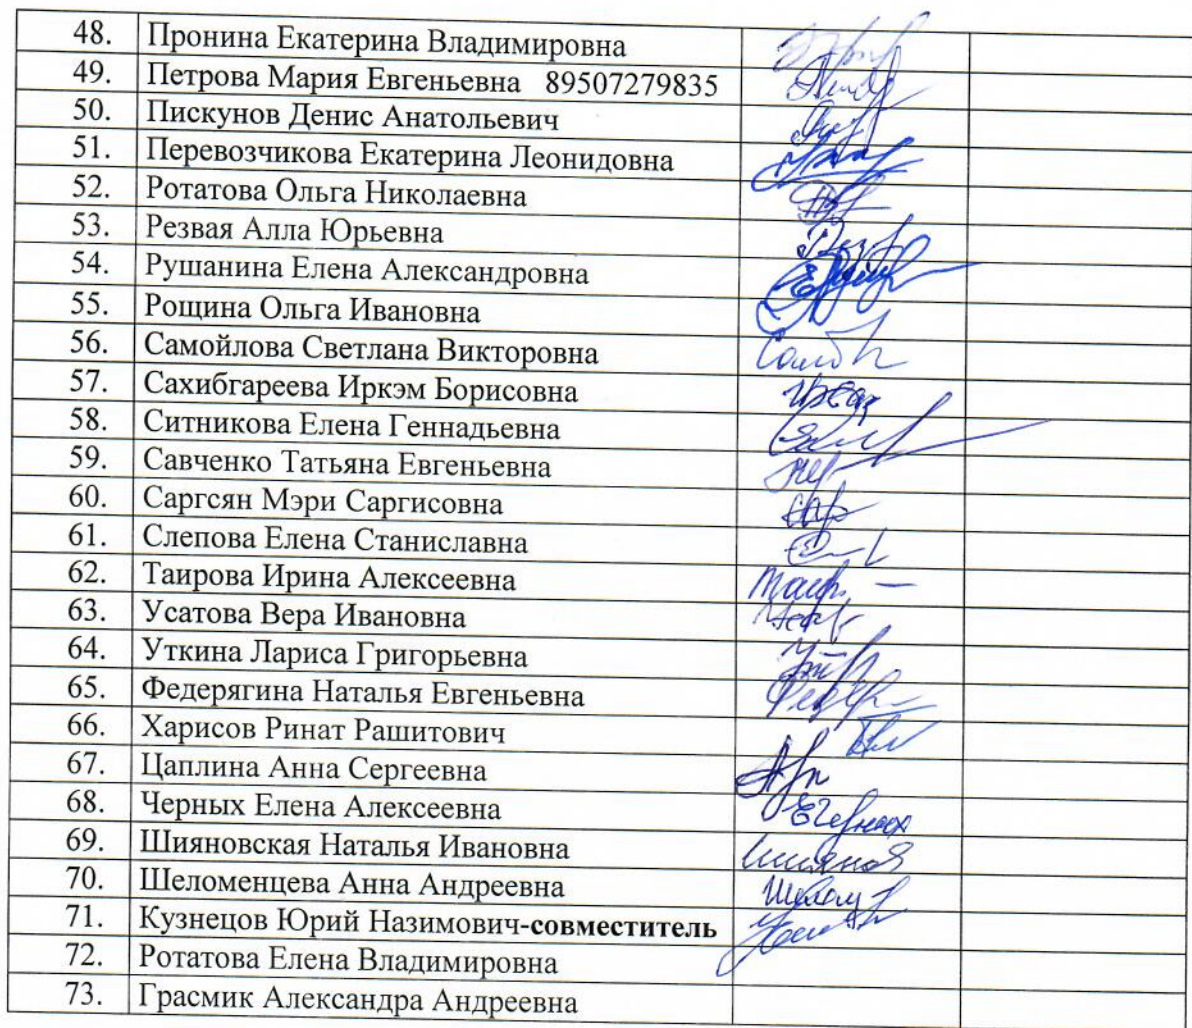 48. Пронина Екатерина Владимировна
49. Петрова Мария Евгеньевна 89507279835
50. Пискунов Денис Анатольевич
51. Перевозчикова Екатерина Леонидовна
52. Ротатова Ольга Николаевна
53. Резвая Алла Юрьевна
54. Рушанина Елена Александровна
55. Рощина Ольга Ивановна
56. Самойлова Светлана Викторовна
57. Сахибгареева Иркэм Борисовна
58. Ситникова Елена Геннадьевна
59. Савченко Татьяна Евгеньевна
60. Саргсян Мэри Саргисовна
61. Слепова Елена Станиславна
62. Таирова Ирина Алексеевна
63. Усатова Вера Ивановна
64. Уткина Лариса Григорьевна
65. Федерягина Наталья Евгеньевна
66. Харисов Ринат Рашитович
67. Цаплина Анна Сергеевна
68. Черных Елена Алексеевна
69. Шияновская Наталья Ивановна
70. Шеломенцева Анна Андреевна
71. Кузнецов Юрий Назимович-совместитель
72. Ротатова Елена Владимировна
73. Грасмик Александра Андреевна